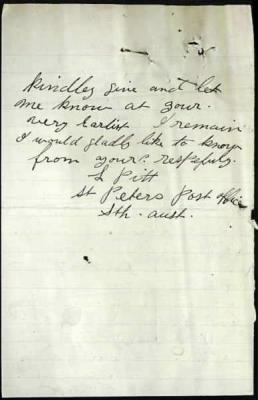 kindley give and let
me know at your.
very earlist I remain
I would gladly like to know
from your. respefuly.
L Pitt
St Peters Post Office
Sth. aust.